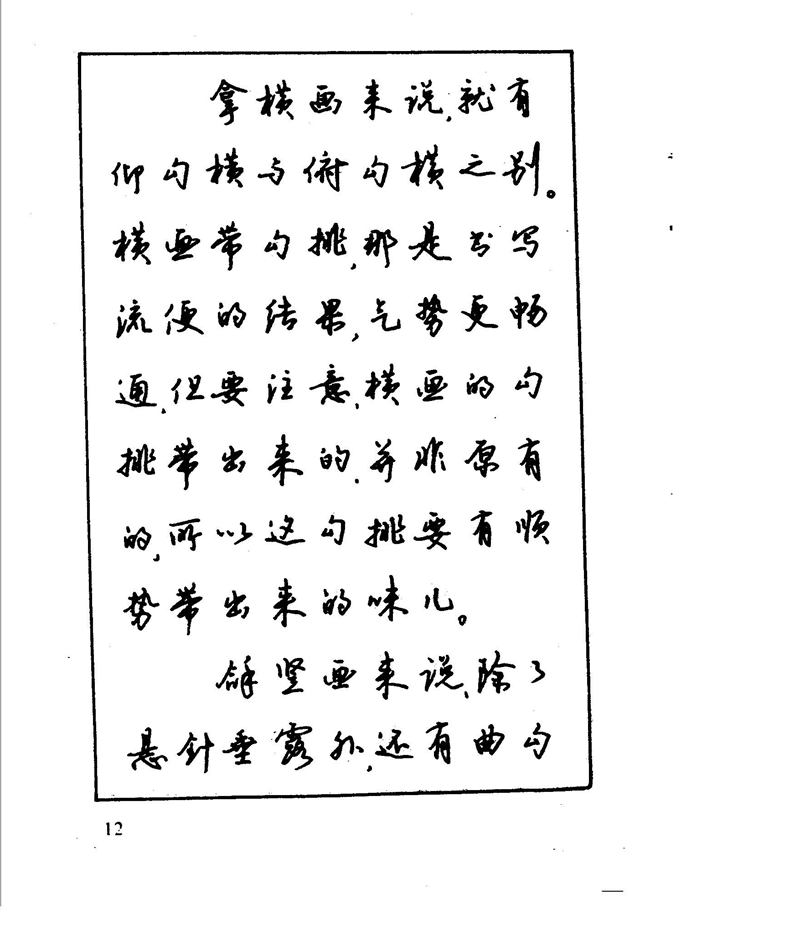 拿横画来说,就有
仰勾横与俯勾横之别。
横画带勾挑,那是书写
流便的结果,气势更畅
通,但要注意,横画的勾
挑带出来的,并非原有
的,所以这勾挑要有顺
势带出来的味儿。
竖画来说,除了
悬针垂露外,还有曲勾
12